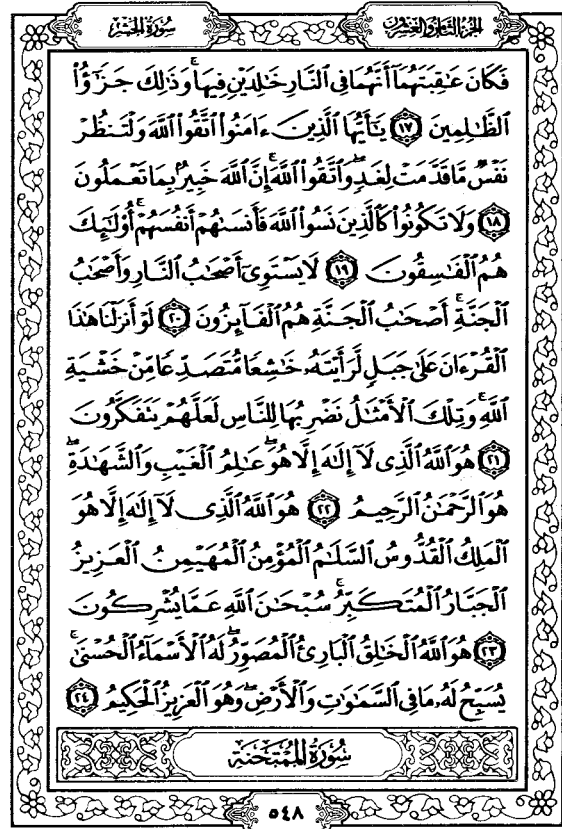 الجزء الثامن والعشرون
سورة الحشر
فَكَانَ عَٰقِبَتَهُمَآ أَنَّهُمَا فِى ٱلنَّارِ خَٰلِدَيْنِ فِيهَا ۚ وَذَٰلِكَ جَزَٰٓؤُا۟
ٱلظَّٰلِمِينَ ١٧ يَٰٓأَيُّهَا ٱلَّذِينَ ءَامَنُوا۟ ٱتَّقُوا۟ ٱللَّهَ وَلْتَنظُرْ
نَفْسٌ مَّا قَدَّمَتْ لِغَدٍ ۖ وَٱتَّقُوا۟ ٱللَّهَ ۚ إِنَّ ٱللَّهَ خَبِيرٌۢ بِمَا تَعْمَلُونَ
١٨ وَلَا تَكُونُوا۟ كَٱلَّذِينَ نَسُوا۟ ٱللَّهَ فَأَنسَىٰهُمْ أَنفُسَهُمْ ۚ أُو۟لَٰٓئِكَ
هُمُ ٱلْفَٰسِقُونَ ١٩ لَا يَسْتَوِىٓ أَصْحَٰبُ ٱلنَّارِ وَأَصْحَٰبُ
ٱلْجَنَّةِ ۚ أَصْحَٰبُ ٱلْجَنَّةِ هُمُ ٱلْفَآئِزُونَ ٢٠ لَوْ أَنزَلْنَا هَٰذَا
ٱلْقُرْءَانَ عَلَىٰ جَبَلٍ لَّرَأَيْتَهُۥ خَٰشِعًا مُّتَصَدِّعًا مِّنْ خَشْيَةِ
ٱللَّهِ ۚ وَتِلْكَ ٱلْأَمْثَٰلُ نَضْرِبُهَا لِلنَّاسِ لَعَلَّهُمْ يَتَفَكَّرُونَ
٢١ هُوَ ٱللَّهُ ٱلَّذِى لَآ إِلَٰهَ إِلَّا هُوَ ۖ عَٰلِمُ ٱلْغَيْبِ وَٱلشَّهَٰدَةِ ۖ
هُوَ ٱلرَّحْمَٰنُ ٱلرَّحِيمُ ٢٢ هُوَ ٱللَّهُ ٱلَّذِى لَآ إِلَٰهَ إِلَّا هُوَ
ٱلْمَلِكُ ٱلْقُدُّوسُ ٱلسَّلَٰمُ ٱلْمُؤْمِنُ ٱلْمُهَيْمِنُ ٱلْعَزِيزُ
ٱلْجَبَّارُ ٱلْمُتَكَبِّرُ ۚ سُبْحَٰنَ ٱللَّهِ عَمَّا يُشْرِكُونَ
٢٣ هُوَ ٱللَّهُ ٱلْخَٰلِقُ ٱلْبَارِئُ ٱلْمُصَوِّرُ ۖ لَهُ ٱلْأَسْمَآءُ ٱلْحُسْنَىٰ ۚ
يُسَبِّحُ لَهُۥ مَا فِى ٱلسَّمَٰوَٰتِ وَٱلْأَرْضِ ۖ وَهُوَ ٱلْعَزِيزُ ٱلْحَكِيمُ ٢٤
سُورَةُ المُمْتَحَنَة
٥٤٨